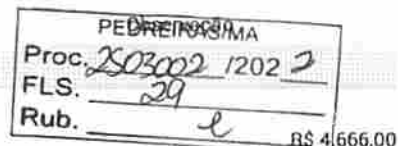 PEDREIRAS/MA
Proc. 2503002 /2022
FLS. 29
Rub.
R$ 4.666,00